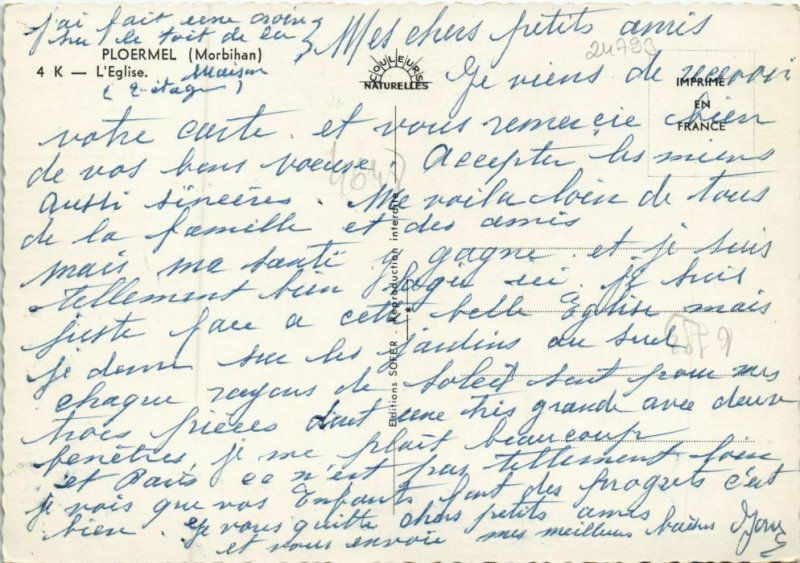 j'ai fait une croix
sur le toit de la
Maison
(2 étage)
PLOERMEL (Morbihan)
4 K — L'Eglise.
COULEURS
NATURELLES
24793
IMPRIMÉ
EN
FRANCE
Mes chers petits amis
Je viens de recevoir
votre carte. et vous remercie bien
de vos bons voeux. Accepter les miens
aussi sincères. Me voila loin de tous
de la famille et des amis
mais ma santé a gagné et je suis
tellement bien logée ici. je suis
juste face a cette belle Eglise mais
je donne sur les jardins au sud
chaque rayons de soleil sont pour mes
trois pièces dont une très grande avec deux
fenêtres, je me plait beaucoup
et Paris ce n'est pas tellement loin
je vois que vos Enfants font des progrès c'est
bien. Je vous quitte chers petits amis
et vous envoie mes meilleurs baisers
Editions SOFER - Reproduction interdite